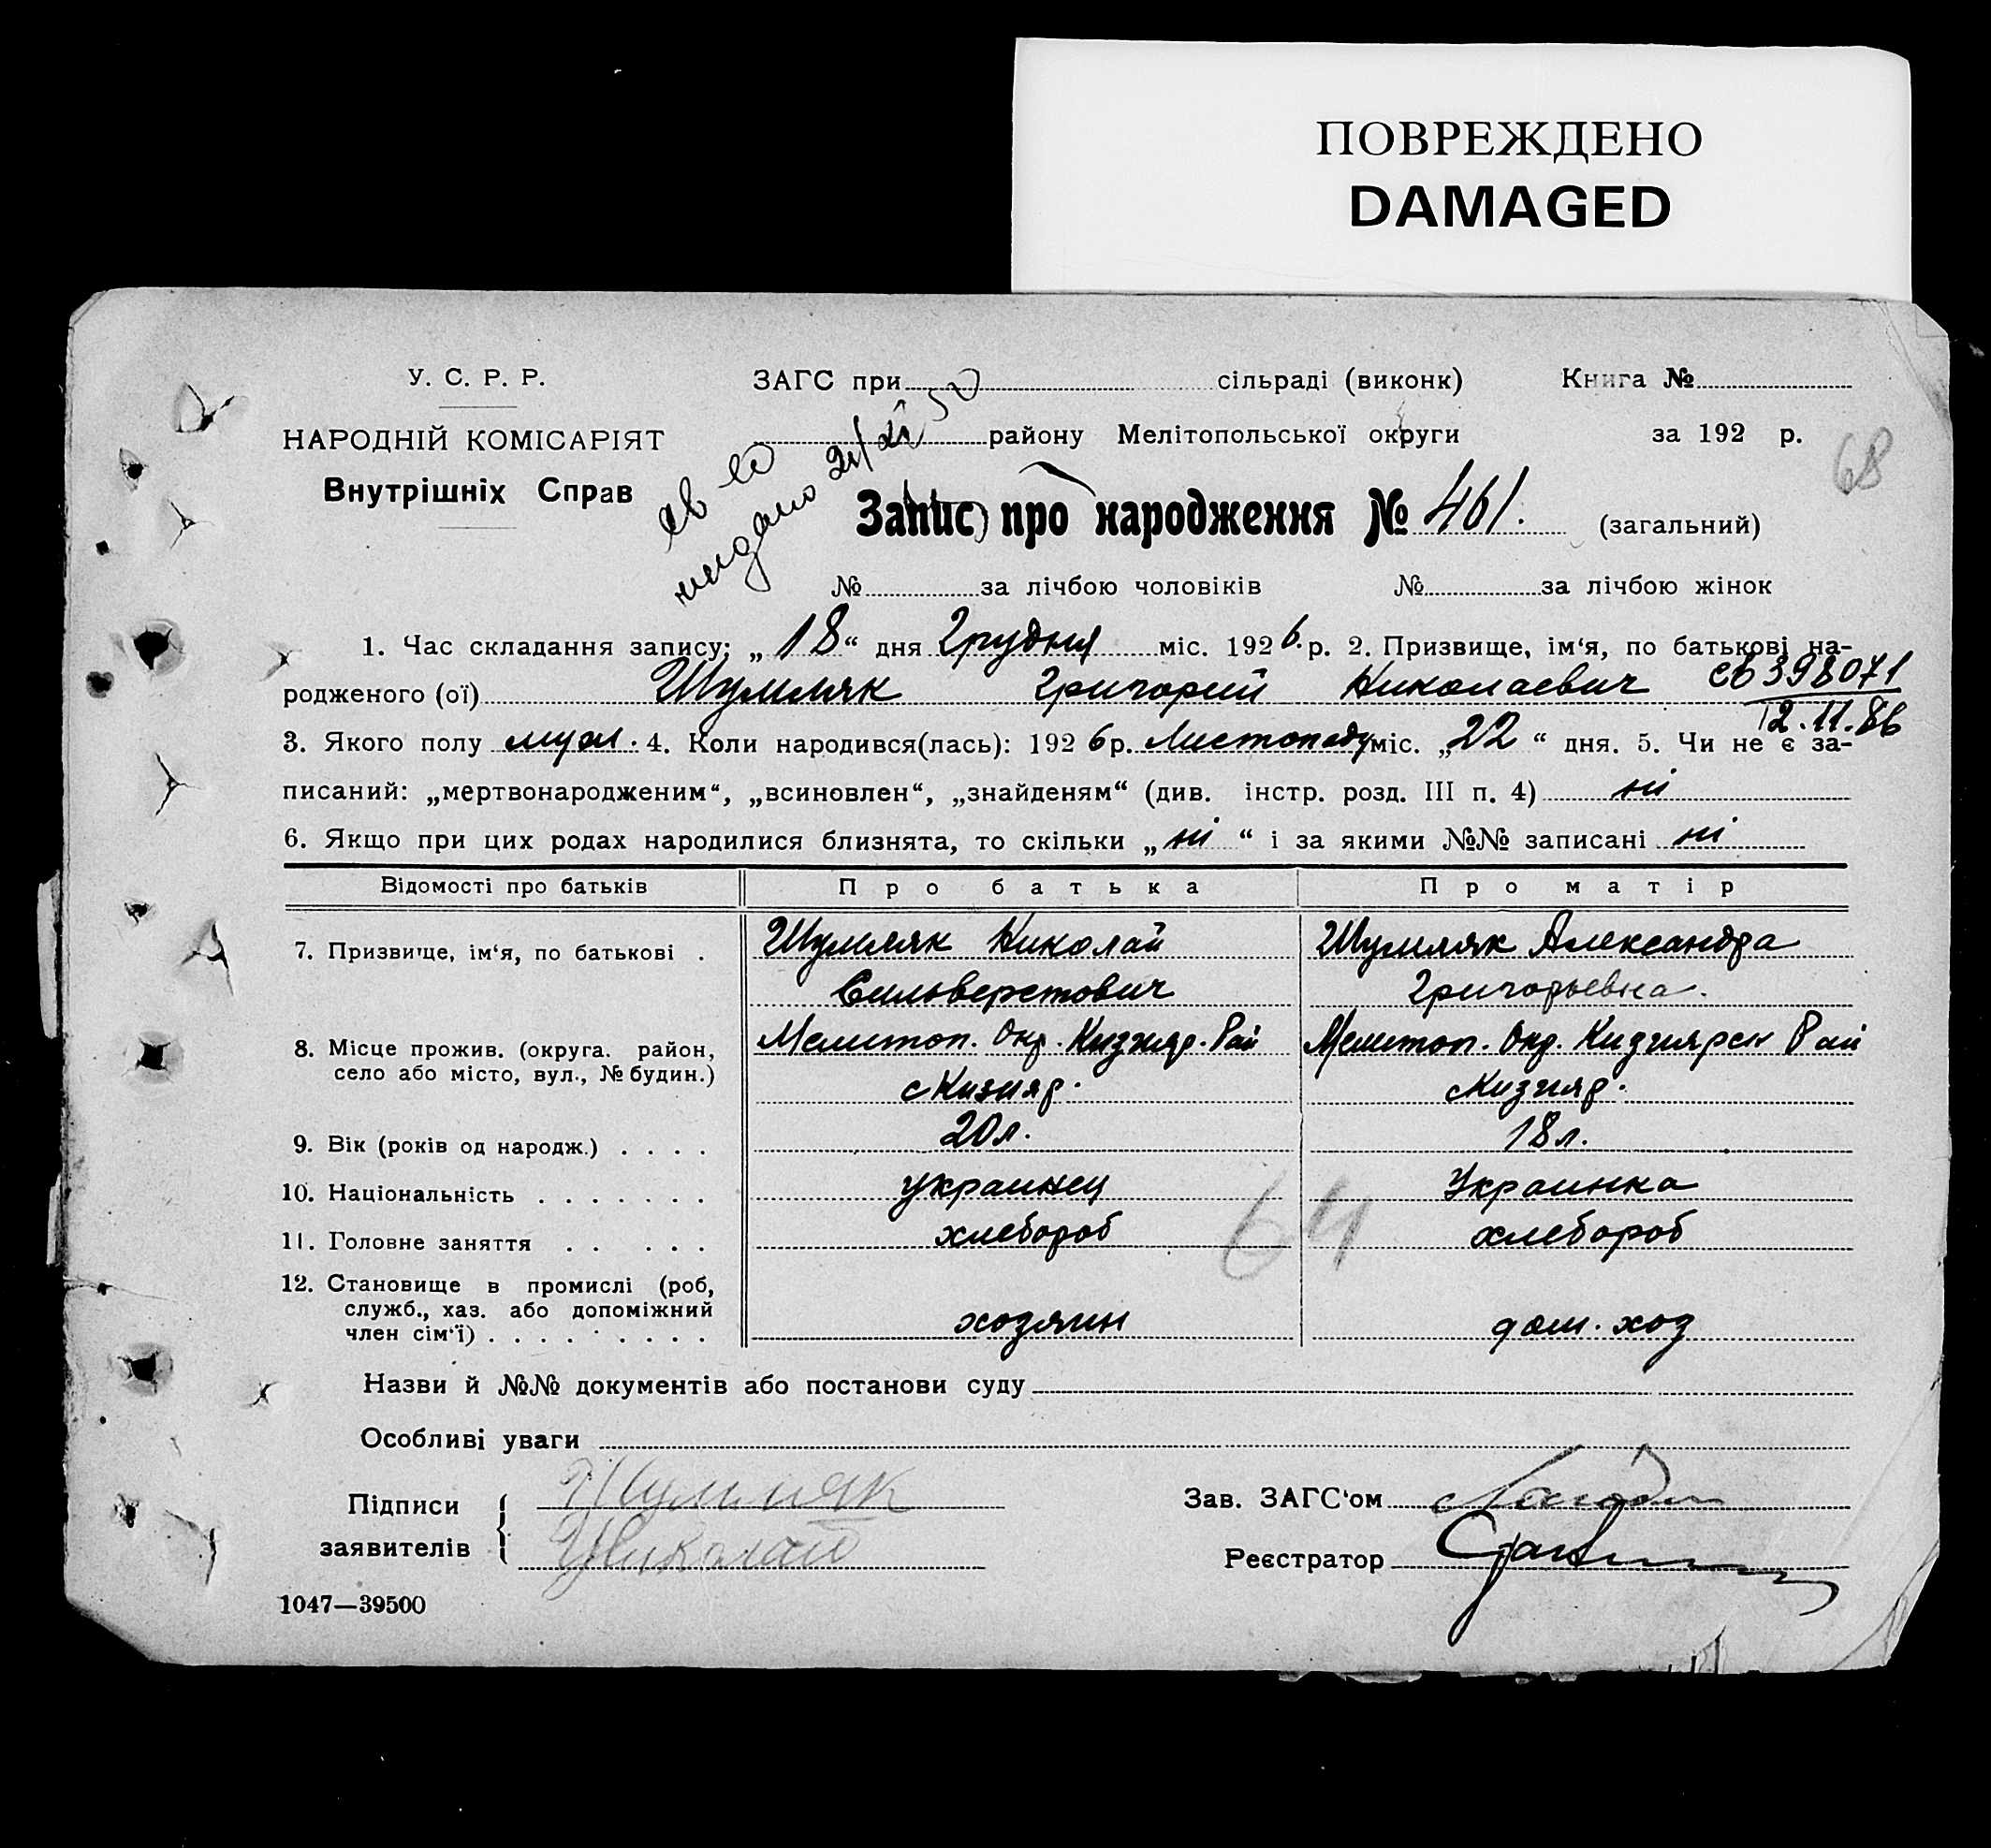 ПОВРЕЖДЕНО
DAMAGED
У. С. Р. Р.
НАРОДНІЙ КОМІСАРІЯТ
Внутрішніх Справ
ЗАГС при сільраді (виконк) Книга №
району Мелітопольської округи за 192 р.
68
св во
видано
Запис про народження № 461. (загальний)
№ за лічбою чоловіків № за лічбою жінок
1. Час складання запису; „ 18 “ дня Грудня міс. 1926. р. 2. Призвище, ім‘я, по батькові на-
родженого (ої) Шумляк Григорий Николаевич св 398071
12.11.86
3. Якого полу муж. 4. Коли народився(лась): 1926 р. Листопаду міс. „ 22 “ дня. 5. Чи не є за-
писаний: „мертвонародженим“, „всиновлен“, „знайденям“ (див. інстр. розд. III п. 4) ні
6. Якщо при цих родах народилися близнята, то скільки „ ні “ і за якими №№ записані ні
Відомості про батьків Про батька Про матір
7. Призвище, ім‘я, по батькові . Шумляк Николай Шумляк Александра
Сильверстович Григорьевна.
8. Місце прожив. (округа. район, Мелитоп. Окр. Кизияр. Рай Мелитоп. Окр. Кизиярск Рай
село або місто, вул., № будин.) с Кизияр. с Кизияр.
9. Вік (років од народж.) . . . . 20 л. 18 л.
10. Національність . . . . . . . украинец Украинка
11. Головне заняття . . . . . хлебороб хлебороб
64
12. Становище в промислі (роб,
служб., хаз. або допоміжний
член сім‘ї) . . . . . . . . . хозяин дом. ход
Назви й №№ документів або постанови суду
Особливі уваги
Підписи Шумляк Зав. ЗАГС‘ом
заявителів Николай Реєстратор
1047—39500